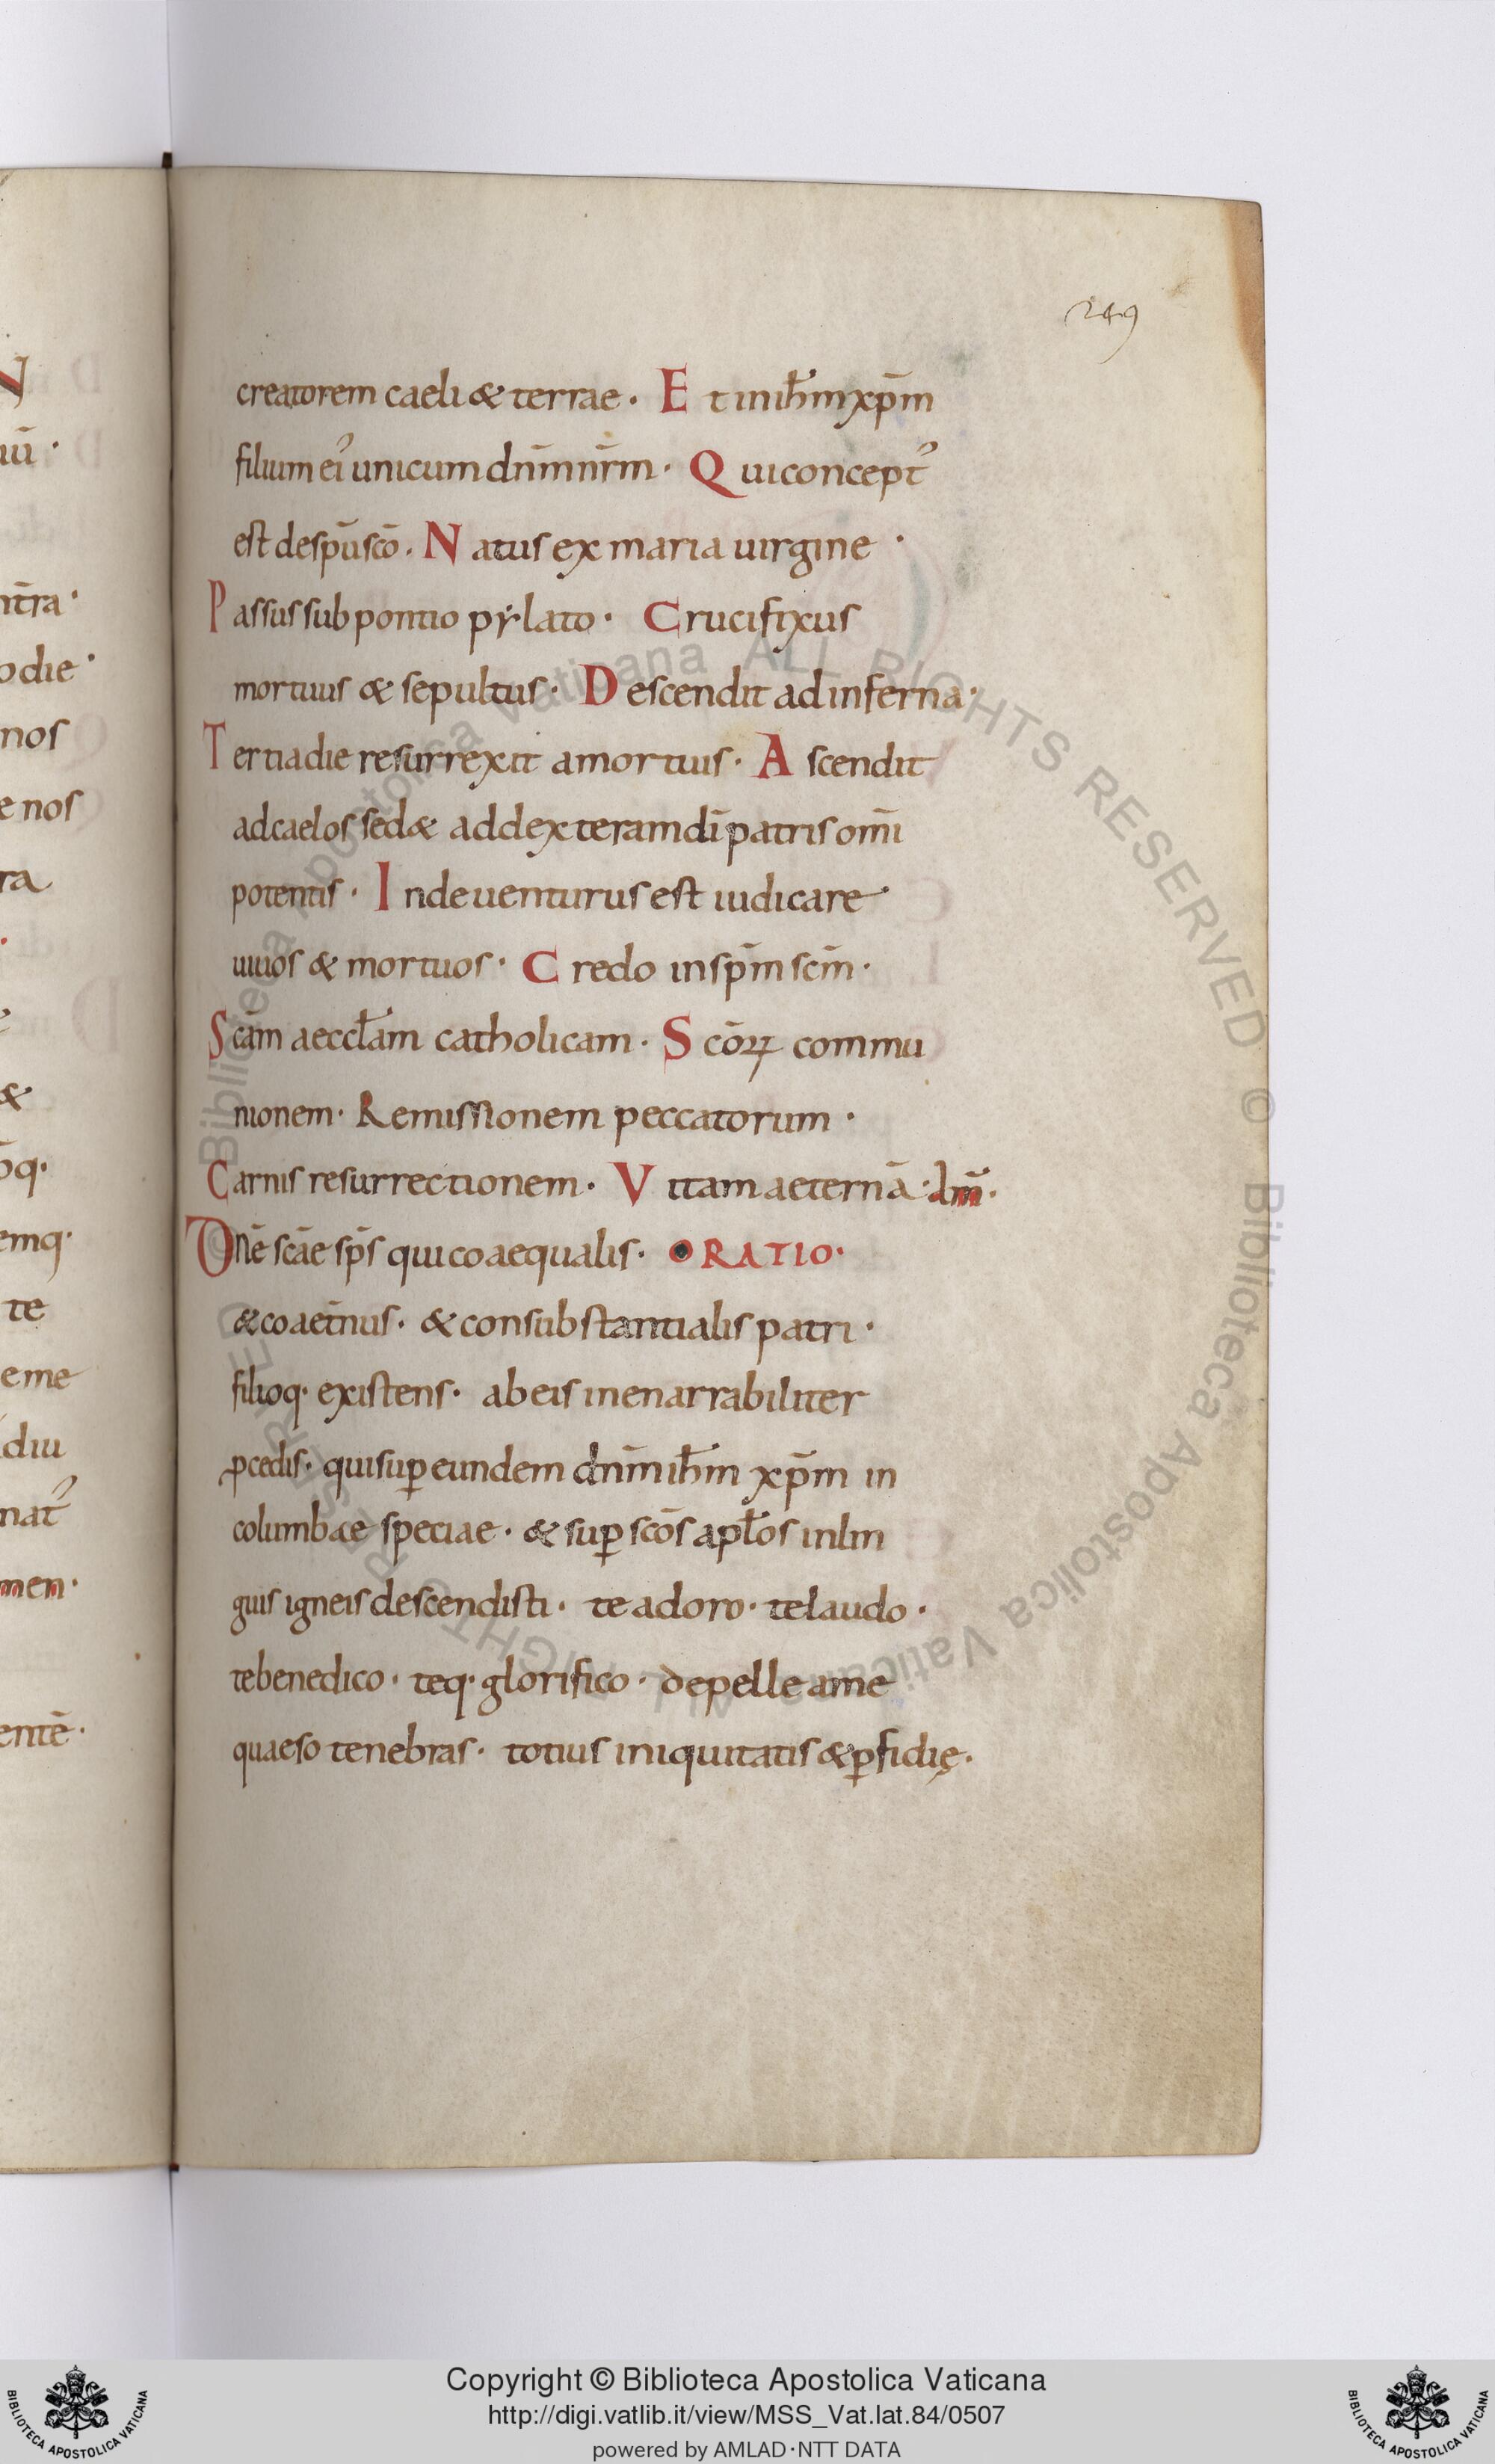 249
creatorem caeli & terrae · Et in ih̄m xp̄m
filium ei᾽ unicum dn̄m nr̄m · Qui concept᾽
est de sp̄u sc̄o · Natus ex maria uirgine ·
Passus sub pontio pẏlato · Crucifixus
mortuus & sepultus · Descendit ad inferna ·
Tertia die resurrexit a mortuis · Ascendit
ad caelos sed& ad dexteram dī patris om̄i
potentis · Inde uenturus est iudicare
uiuos & mortuos · Credo in sp̄m sc̄m ·
Scām aeccl̄am catholicam · Scōꝝ commu
nionem · Remissionem peccatorum ·
Carnis resurrectionem · Vitam aeternā · am̄ ·
Dn̄e scāe sp̄s qui coaequalis · ORATIO ·
& coaet̄nus · & consubstantialis patri ·
filioq· existens · ab eis inenarrabiliter
ꝓcedis · qui suꝑ eundem dn̄m ih̄m xp̄m in
columbae speciae · & suꝑ scōs apl̄os in lin
guis igneis descendisti · te adoro · te laudo ·
te benedico · teq· glorifico · depelle a me
quaeso tenebras · totius iniquitatis & ꝑfidię ·
N
iū ·
nt̄ra ·
odie ·
nos
e nos
ra
&
ōq·
emq·
te
eme
diu
nat᾽
men ·
entē ·
Biblioteca Apostolica Vaticana ALL RIGHTS RESERVED © Biblioteca Apostolica Vaticana ALL RIGHTS RESERVED
Copyright © Biblioteca Apostolica Vaticana
http://digi.vatlib.it/view/MSS_Vat.lat.84/0507
powered by AMLAD·NTT DATA
BIBLIOTECA APOSTOLICA VATICANA
BIBLIOTECA APOSTOLICA VATICANA